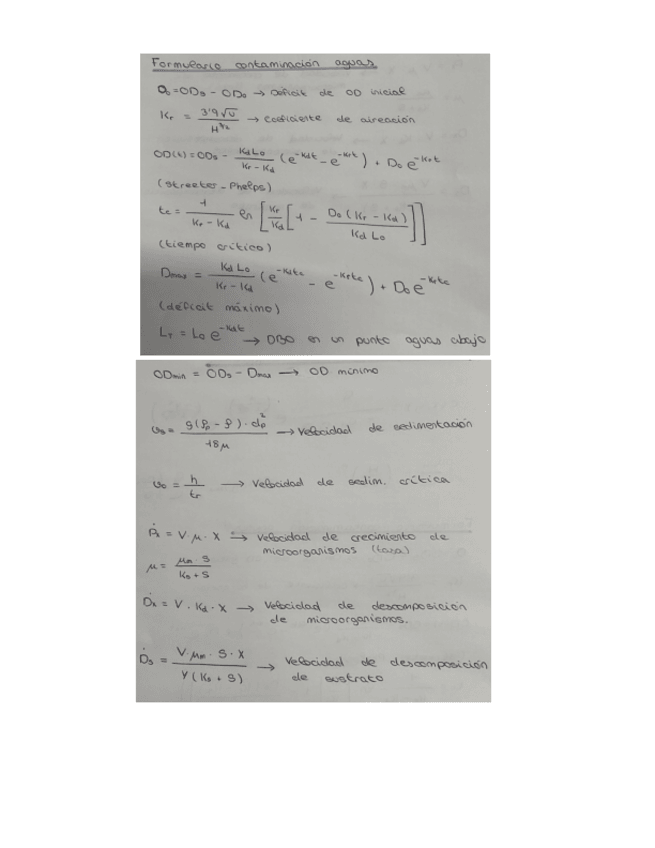 Formulario contaminación aguas
D₀ = ODs - OD₀ → Déficit de OD inicial
Kr = 3'9√U / H^3/2 → coeficiente de aireación
OD(t) = ODs - KdL₀ / Kr - Kd (e^-Kdt - e^-Krt) + D₀ e^-Krt
(Streeter-Phelps)
tc = 1 / Kr - Kd ln [Kr/Kd [1 - D₀(Kr - Kd) / Kd L₀]]
(tiempo crítico)
Dmax = KdL₀ / Kr - Kd (e^-Kdtc - e^-Krtc) + D₀e^-Krtc
(déficit máximo)
LT = L₀ e^-Kdt → DBO en un punto aguas abajo
ODmin = ODs - Dmax → OD mínimo
vs = g(ρp - ρ)·dp² / 18μ → Velocidad de sedimentación
v₀ = h / tr → Velocidad de sedim. crítica
Ṗx = V·μ·X → Velocidad de crecimiento de
microorganismos (tasa)
μ = μm·S / Ks + S
Ḋx = V·Kd·X → Velocidad de descomposición
de microorganismos.
Ḋs = V·μm·S·X / Y(Ks + S) → Velocidad de descomposición
de sustrato